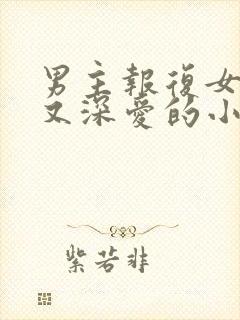 男主報復女
又深愛的小
紫若非